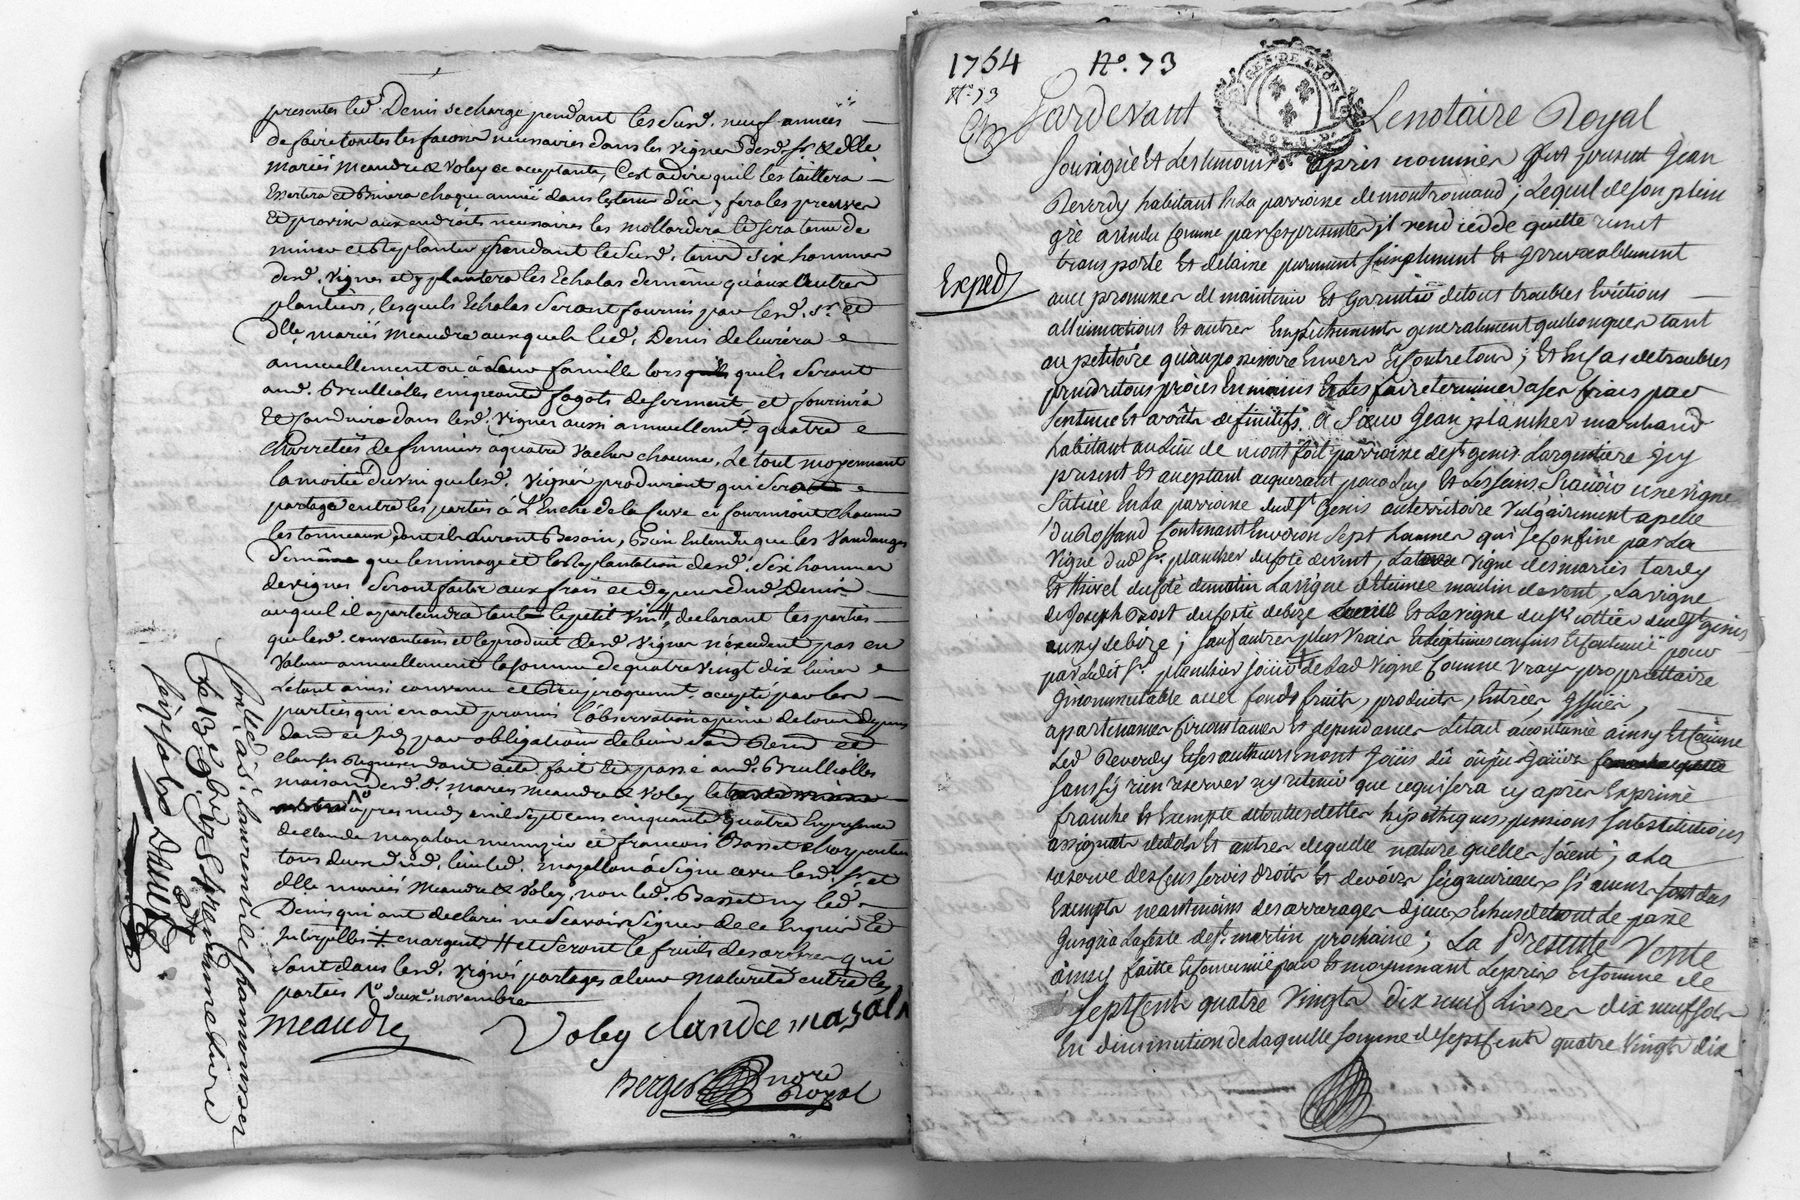 presentes led. Denis se charge pendant lesdusd. neuf années
de faire toutes les facons necessaires dans les vignes desd. sr. & dlle
mariés meandre & Voley ce acceptants, C'est adire quil les taillera
et Binera chaque année dans letems dû, y fera les preuves
et provins aux endroits necessaires les mollardera et sera tenu de
miner et Replanter pendant le susd. tems six hommes
desd. vignes et y plantera les Echalas de même qu'aux autres
plantiers, lesquels Echalas Seront fournis par lesd. sr. et
dlle. mariés Meandre auxquels led. Denis delivrera
annuellement ou à Leur famille lors quils Seront
aud. Brullioles cinquante fagots de serment et fournira
Et Conduira dans lesd. Vignes aussi annuellemt. quatre
charretées de fumier à quatre vaches chacune, Le tout moyennant
la moitié du vin que lesd. vignes produiront qui Sera
partagé entre les parties à L'Enche de la Cuve et fourniront chacune
les tonneaux dont ils auront Besoin, Bien Entendu que les Vandanges
De même que le minage et les Replantation desd. Six hommes
de vignes Seront faits aux frais et depens dud. Denis
auquel il apartiendra tout le petit Vin, declarant les parties
que lesd. conventions et le produit desd. Vignes n'excedent pas en
Valeur annuellement la somme de quatre Vingt dix livres
Le tout ainsi convenu et Reciproquemt. accepté par les
parties qui en ont promis l'observation a peine de tous depens
par obligation de biens
clauses Requises dont acte fait Et passé aud. Brullioles
maison desd. Sr. maries Meandre & Voley le
apres midy mil Sept cens cinquante quatre En presence
de claude mazalon menuizier et francois Basset charpentier
tous dud. lieu led. mazallon à Signé avec lesd. Sr et
dlle mariés Meandre & Voley, non led. Basset ny led.
Denis qui ont declaré ne Scavoir Signer de ce Enquis Et
Interpellés # en argent # et Seront le fruits des arbres qui
Sont dans lesd. Vignes partages a leur Maturité entre les
parties deux. novembre
meandre
Voley claude mazalon
Berger nore
Royal
Conllé à St. Laurent de chamousset
Le 13e 9bre 1754
DAVID
1754 No. 73
No. 73
GEN. DE LYON
SOLS
Pardevant Le notaire Royal
Sousigné Et Les temoins après nommés fut present Jean
Reverdy habitant En La parroisse de montromand; Lequel de son plein
gré a vendu comme par ses presentes il vend cedde quitte remet
transporte Et delaisse purement Simplement Et Irrevocablement
Exped
avec promesse de maintenir Et Garantir de tous troubles Evictions
Et autres Empechements generalement quelconques tant
au petitoire qu'au possessoire Envers Et Contre tous; Et En Cas de troubles
prendre tous procès En mains Et Les faire terminer a ses frais par
Sentence Et arrêts definitifs. A Sieur Jean plancher marchand
habitant au Lieu de parroisse de St. Genis Largentiere Icy
present Et acceptant acquerant pour Luy Et Les Siens Scavoir une vigne
Située En La parroisse dud. St Genis au territoire Vulgairement apellé
Du Rossand Contenant Environ Sept hommes qui Se Confine par La
Vigne dud. Sr. plancher du Côté de vent, La vigne des mariés tardy
Et thivel du Côté de matin La vigne d'Etienne moulin de vent, La vigne
de Joseph du Côté de bize Et La vigne du Sr. Cottier dud. St Genis
aussy de bize; Sauf autres plus Vrais Et Legitimes confins Et Contenue pour
par Ledit Sr. plancher Jouir de Lad Vigne Comme vray proprietaire
Incommutable avec fonds fruits, produits, Entrées Issües,
apartenances Circonstances Et dependances Letout acoutumé ainsy Et Comme
Led. Reverdy Et ses autheurs En ont Joüis dû oû pu Joüir
Sans S'y rien reserver ny retenir que ce qui Sera cy après Exprimé
franche Et Exempte de toutes dettes hipothèques, pensions Substitutions
assignats de dots Et autres de quelle nature quelles Soient; a La
reserve des Cens Servis droits Et devoirs Seigneuriaux Si aucuns Sont dus
Exempts neantmoins des arrerages d'yceux Echus de tout Le passé
Jusqu'à La feste de St. martin prochaine; La Presente Vente
ainsy faitte Et Convenüe pour Et moyennant Le prix Et Somme de
Sept Cents quatre Vingts dix neuf Livres dix neuf sols
En diminution de Laquelle Somme de Sept Cents quatre Vingts dix